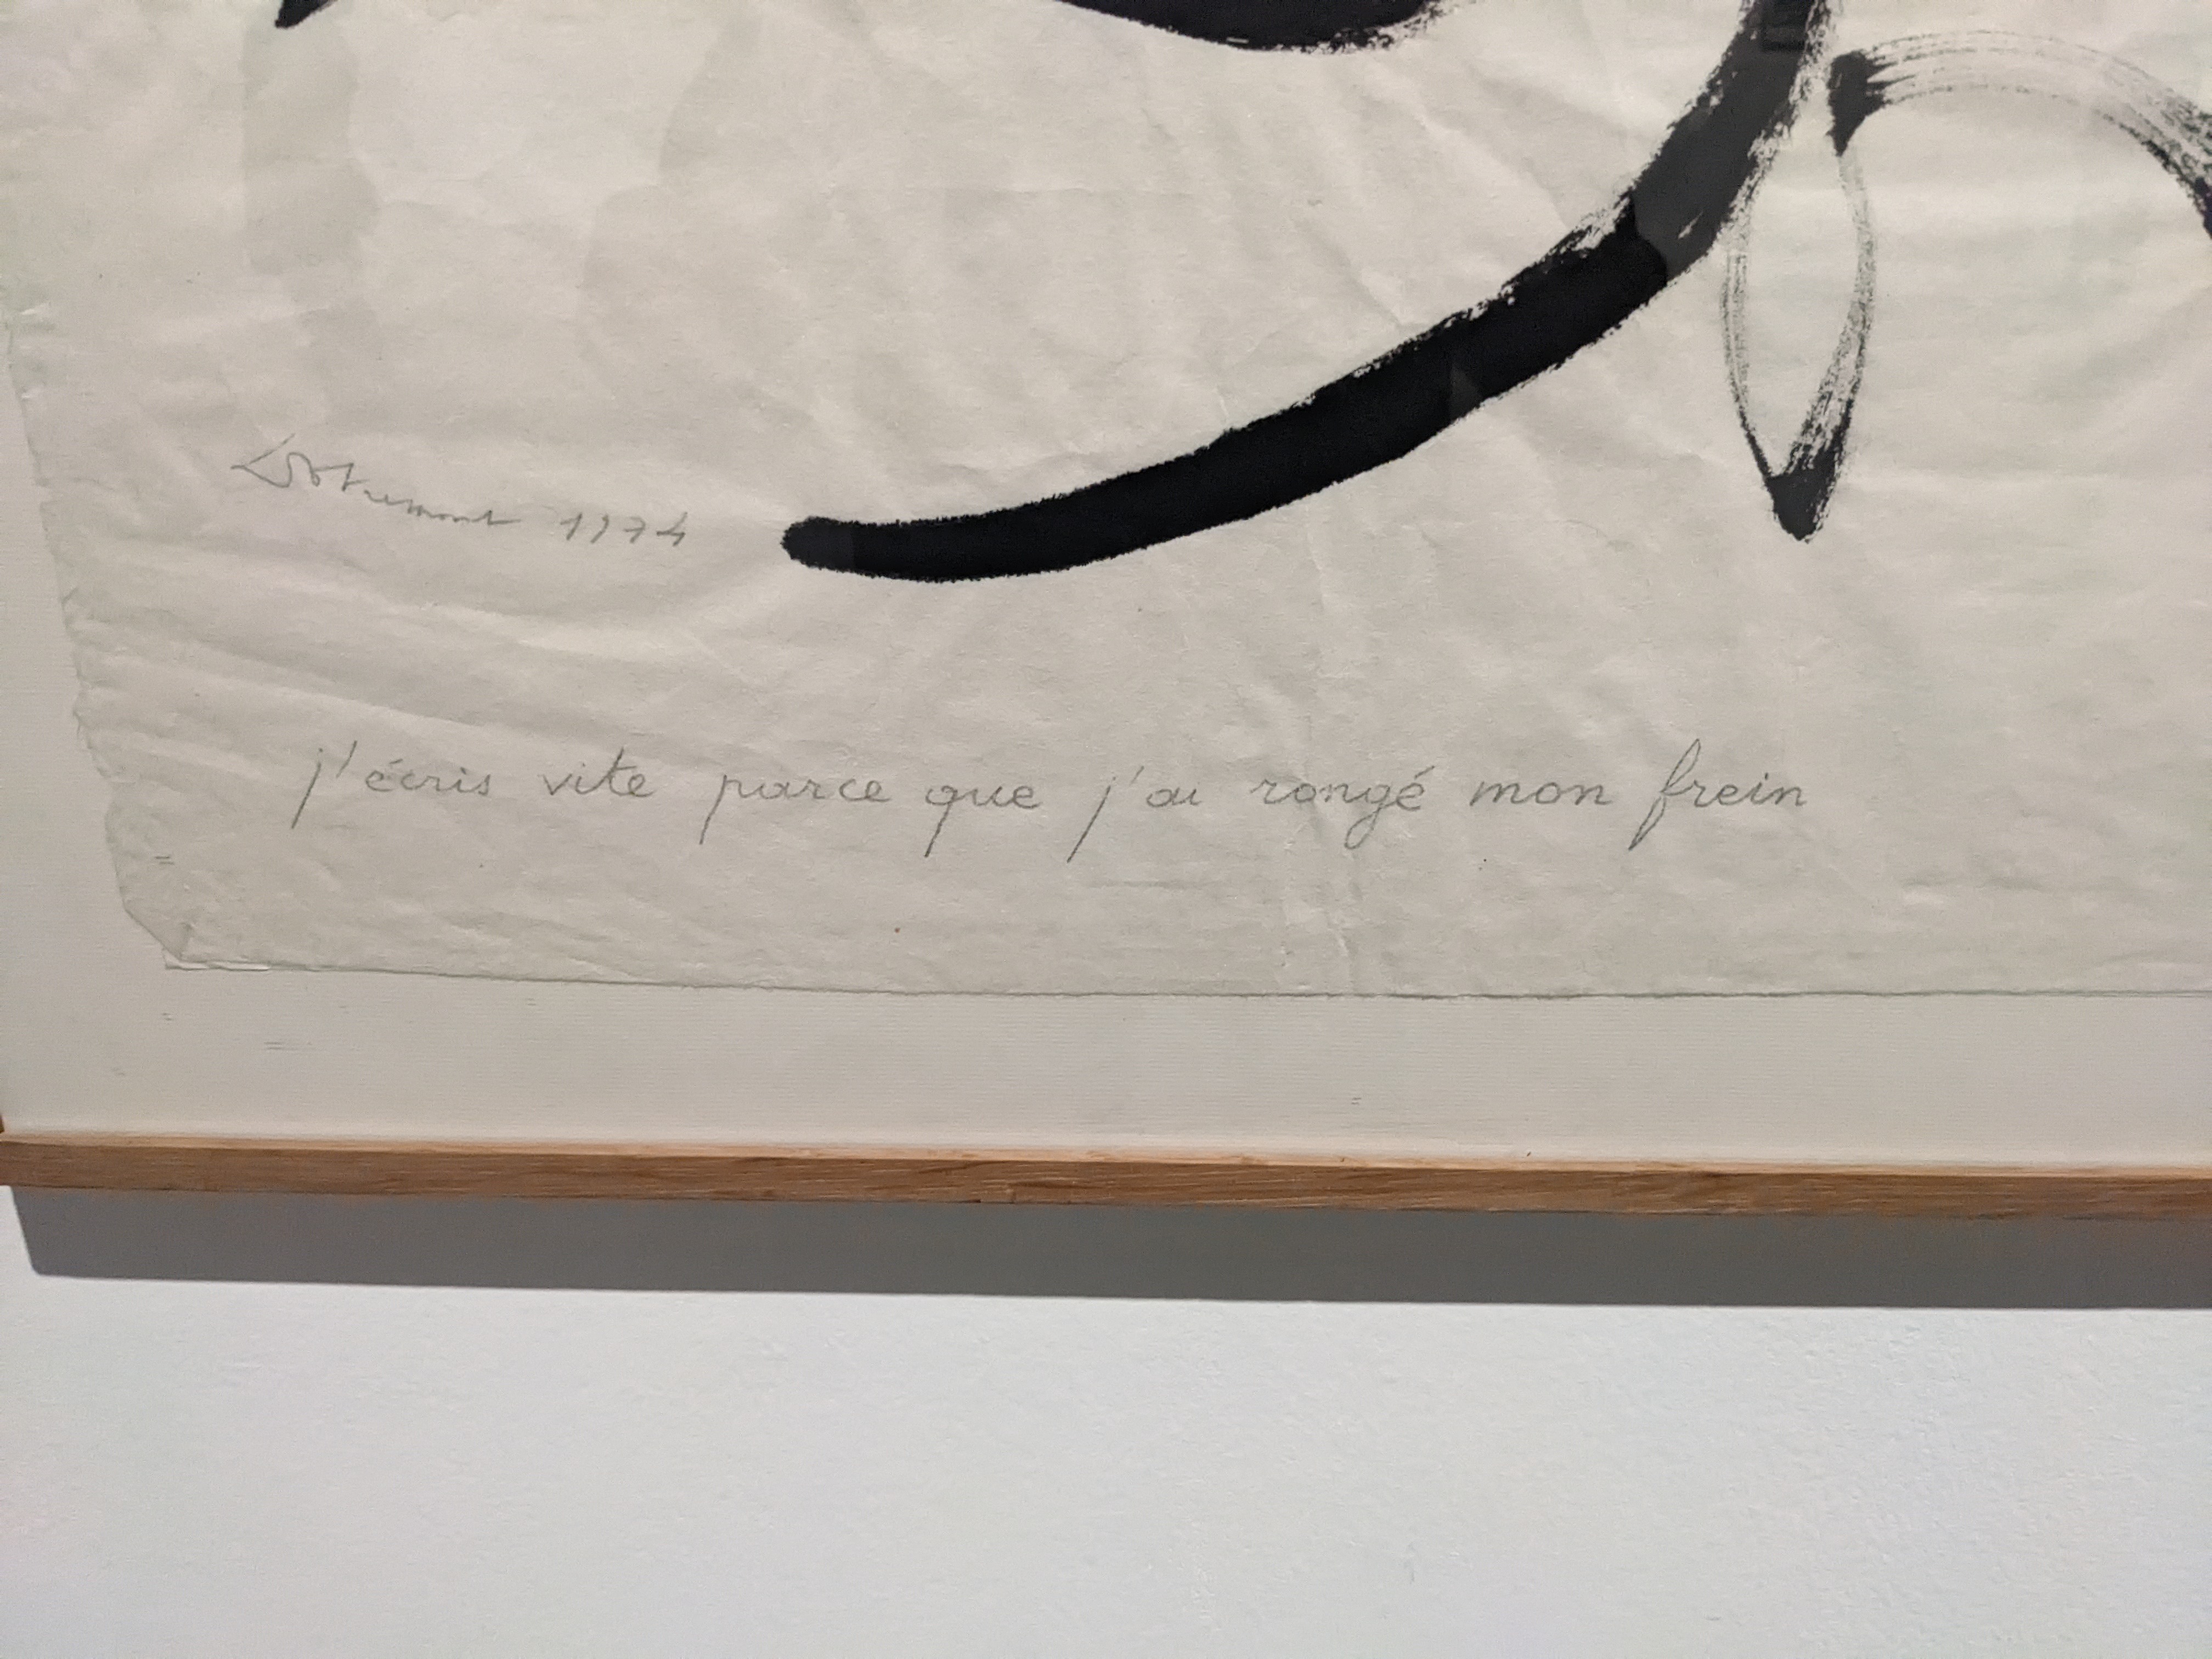 Dotremont 1974
j'écris vite parce que j'ai rongé mon frein